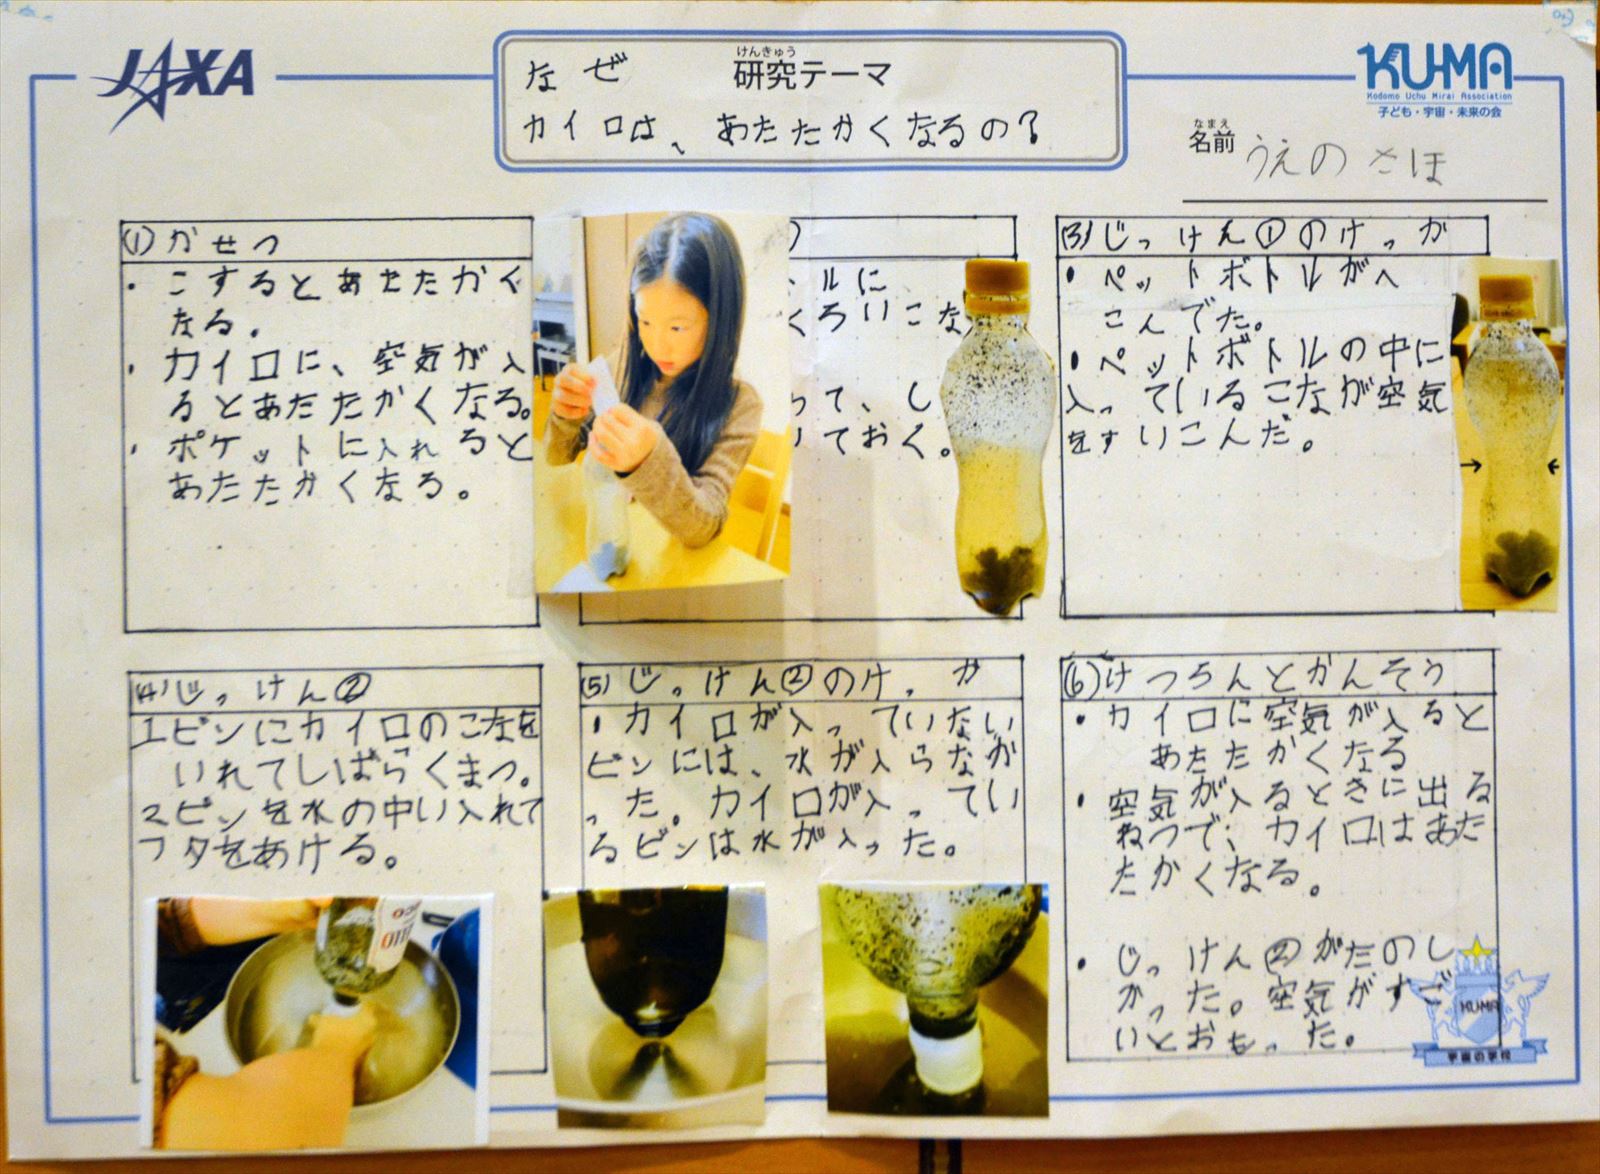 JAXA
けんきゅう
なぜ 研究テーマ
カイロは、あたたかくなるの？
KU-MA
Kodomo Uchu Mirai Association
子ども・宇宙・未来の会
なまえ
名前 うえの さほ
(1) かせつ
・こするとあたたかく
なる。
・カイロに、空気が入
るとあたたかくなる。
・ポケットに入れると
あたたかくなる。
ルに
くろいこな
って、し
ておく。
(3) じっけん①のけっか
・ペットボトルがへ
こんでた。
・ペットボトルの中に
入っているこなが空気
をすいこんだ。
(4) じっけん②
1ビンにカイロのこなを
いれてしばらくまつ。
2ビンを水の中い入れて
フタをあける。
(5) じっけん②のけっか
・カイロが入っていない
ビンには、水が入らなか
った。カイロが入ってい
るビンは水が入った。
(6) けつろんとかんそう
・カイロに空気が入ると
あたたかくなる
・空気が入るときに出る
ねつで、カイロはあた
たかくなる。
・じっけん②がたのし
かった。空気がすご
いとおもった。
KUMA
宇宙の学校